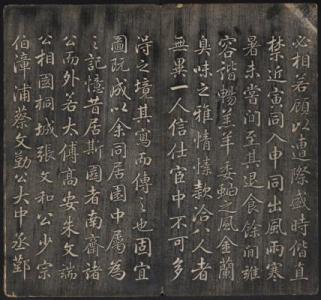 必相若顧以遭際盛時偕直
禁近寅同入申同出風雨寒
暑未嘗間至其退食餘閒雅
容諧暢羔羊委蛇之風金蘭
臭味之雅情愫款洽八人者
無異一人信仕宦中不可多
得之境其寫而傳之也固宜
圖既成以余同居園中屬為
之記憶昔居斯園者南齋諸
公而外若太傅高安朱文端
公相國桐城張文和公少宗
伯漳浦蔡文勤公大中丞鄞